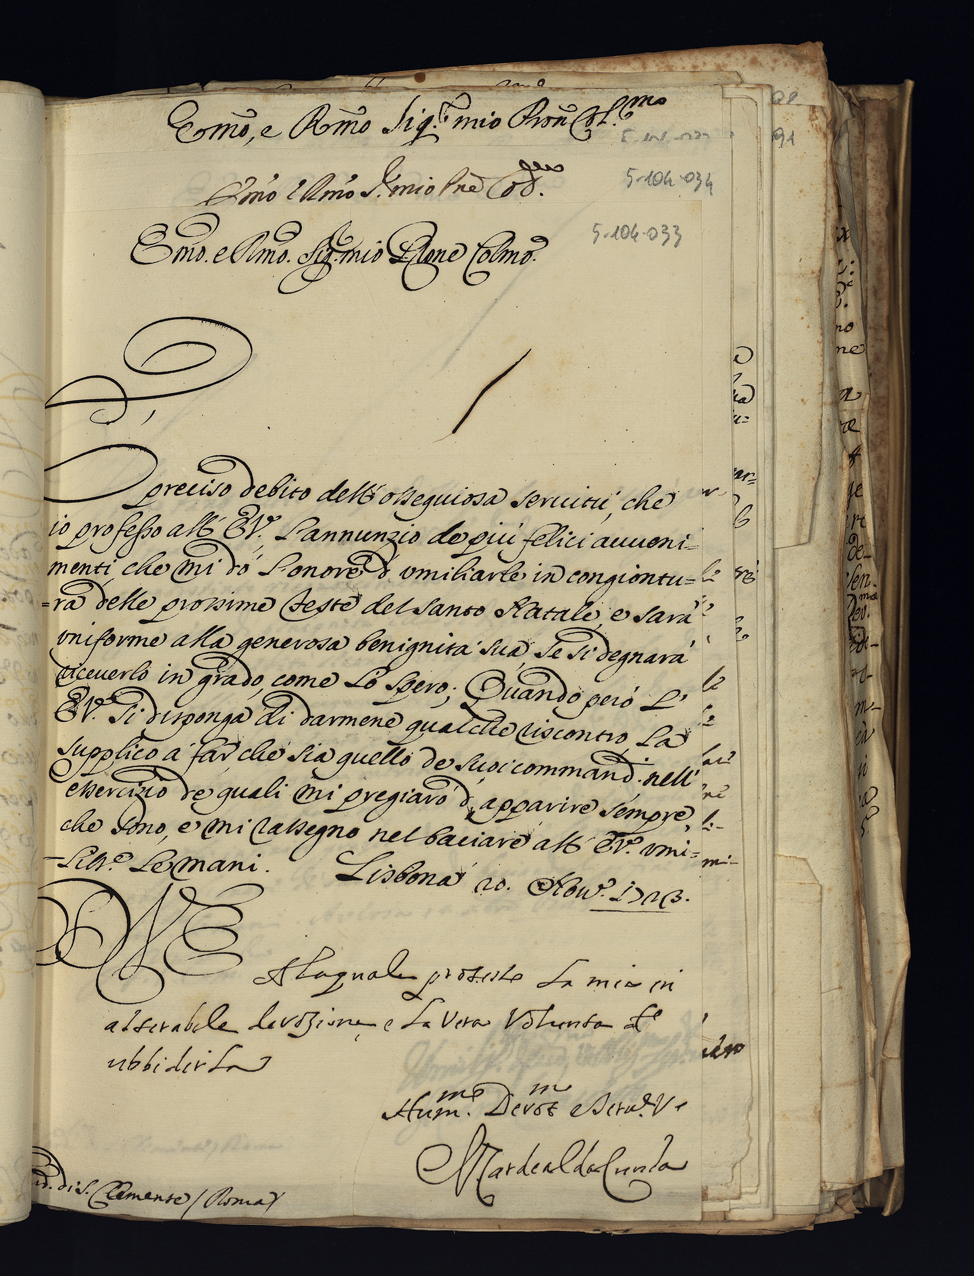 Emo, e Rmo Sig.r mio Pron Col.mo
5-104-034
Emo e Rmo S.r mio Pne Co
5-104-033
Emo. e Rmo. Sig. mio Prone Colmo.
preciso debito dell' ossequiosa servitù, che
io professo all' E.V. l'annunzio de più felici avveni=
menti, che mi dò l'onore d' umiliarle in congiontu=
=ra delle prossime feste del Santo Natale, e sarà
uniforme alla generosa benignità sua, se si degnarà
riceverlo in grado, come lo spero; Quando però l'
E.V. si disponga di darmene qualche riscontro, la
supplico a far che sia quello de suoi commandi. nell'
essercizio de quali mi pregiarò d' apparire sempre
che sono, e mi rassegno nel baciare all' E.V. umi=
-lite. le mani. Lisbona 20. Nov.e 1723.
VE
Alaquale protesto la mia in
alterabile devozione e la vera volunta de
ubbidirla
Hum.mo Devot.m e Serv. V.
N. Card. al da Cunha
di S. Clemente / Roma